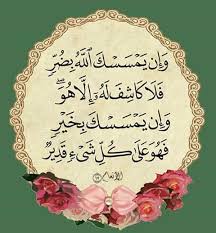 وَإِن يَمْسَسْكَ اللَّهُ بِضُرٍّ
فَلَا كَاشِفَ لَهُ إِلَّا هُوَ ۖ
وَإِن يَمْسَسْكَ بِخَيْرٍ
فَهُوَ عَلَىٰ كُلِّ شَيْءٍ قَدِيرٌ
الأنعام